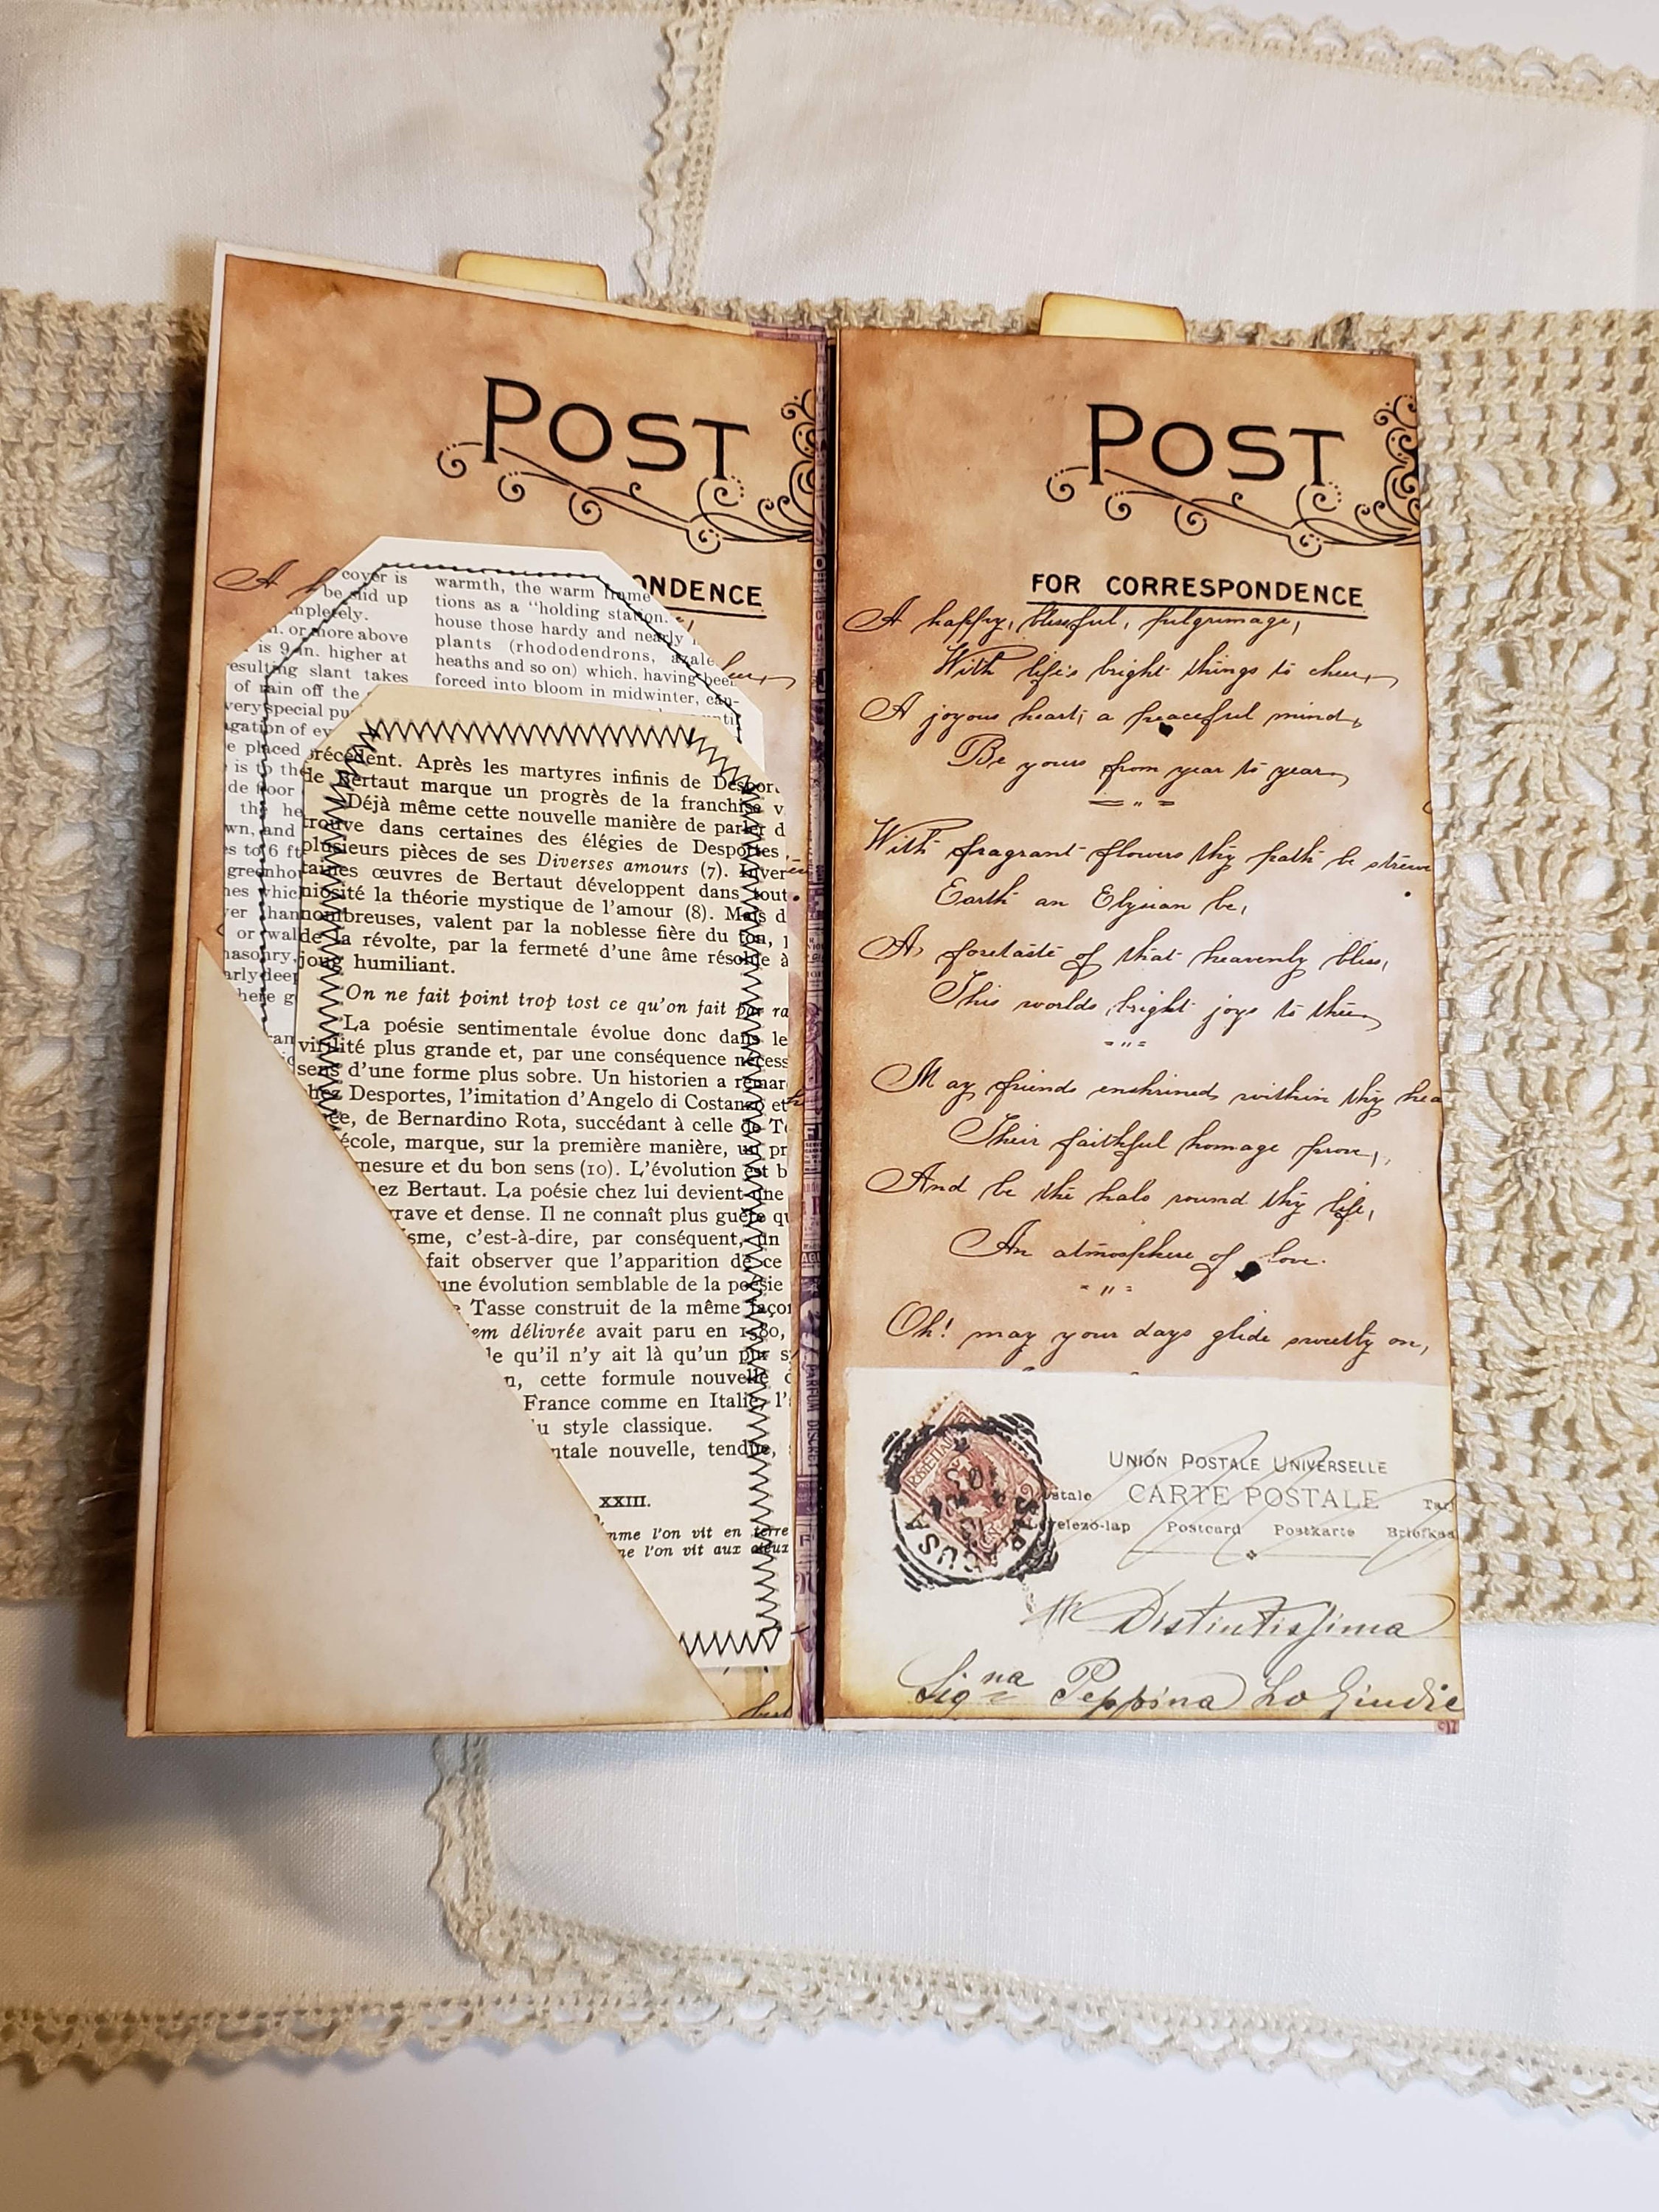 POST
ONDENCE
A h
cover is
be slid up
mpletely.
n. or more above
is 9 in. higher at
esulting slant takes
of rain off the
very special pu
gation of ev
e placed
is to the
de floor
the he
wn, and
es to 6 ft
greenho
nes which
ver than
or wall
nasonry,
arly deep
here g
warmth, the warm frame
tions as a "holding station.
house those hardy and nearly
plants (rhododendrons, azale
heaths and so on) which, having been
forced into bloom in midwinter, can-
précédent. Après les martyres infinis de Desport
de Bertaut marque un progrès de la franchise v
Déjà même cette nouvelle manière de parler d
trouve dans certaines des élégies de Desportes,
plusieurs pièces de ses Diverses amours (7). Inver
taines œuvres de Bertaut développent dans tout
niosité la théorie mystique de l'amour (8). Mais d
nombreuses, valent par la noblesse fière du ton,
de la révolte, par la fermeté d'une âme résolue à
joug humiliant.
On ne fait point trop tost ce qu'on fait par ra
La poésie sentimentale évolue donc dans le
virilité plus grande et, par une conséquence nécess
sens d'une forme plus sobre. Un historien a remar
chez Desportes, l'imitation d'Angelo di Costanzo et
ce, de Bernardino Rota, succédant à celle de Te
école, marque, sur la première manière, un pr
mesure et du bon sens (10). L'évolution est b
ez Bertaut. La poésie chez lui devient une
grave et dense. Il ne connaît plus guère qu
sme, c'est-à-dire, par conséquent, un
fait observer que l'apparition de ce
une évolution semblable de la poésie
e Tasse construit de la même façon
em délivrée avait paru en 1580,
le qu'il n'y ait là qu'un pur s
n, cette formule nouvelle d
France comme en Italie, l'
u style classique.
ntale nouvelle, tendue,
XXIII.
mme l'on vit en terre
ne l'on vit aux cieux
POST
FOR CORRESPONDENCE
A happy, blissful, pilgrimage,
With life's bright things to cheer,
A joyous heart, a peaceful mind,
Be yours from year to year,
With fragrant flowers thy path be strew
Earth an Elysian be,
A, foretaste of that heavenly bliss,
This worlds bright joys to thee,
May friends enshrined within thy hea
Their faithful homage prove,
And be the halo round thy life,
An atmosphere of love.
Oh! may your days glide sweetly on,
UNION POSTALE UNIVERSELLE
CARTE POSTALE
Levelezö-lap Postcard Postkarte Briefkaa
Distintissima
Signa Peppina Lo Giudic